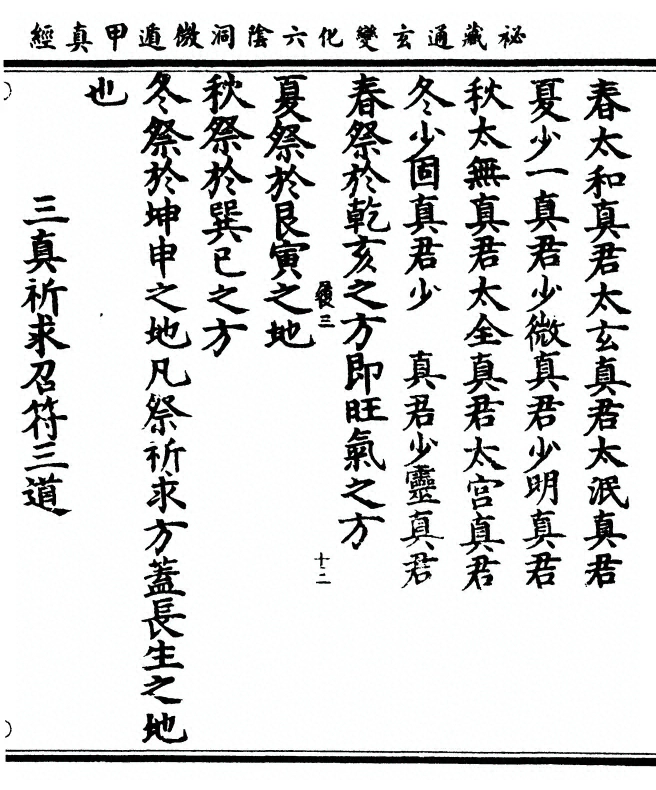 祕藏通玄變化六陰洞微遁甲真經
春太和真君太玄真君太泯真君
夏少一真君少微真君少明真君
秋太無真君太全真君太宮真君
冬少固真君少　真君少靈真君
春祭於乾亥之方即旺氣之方
後三
十二
夏祭於艮寅之地
秋祭於巽巳之方
冬祭於坤申之地凡祭祈求方蓋長生之地
也
三真祈求召符三道